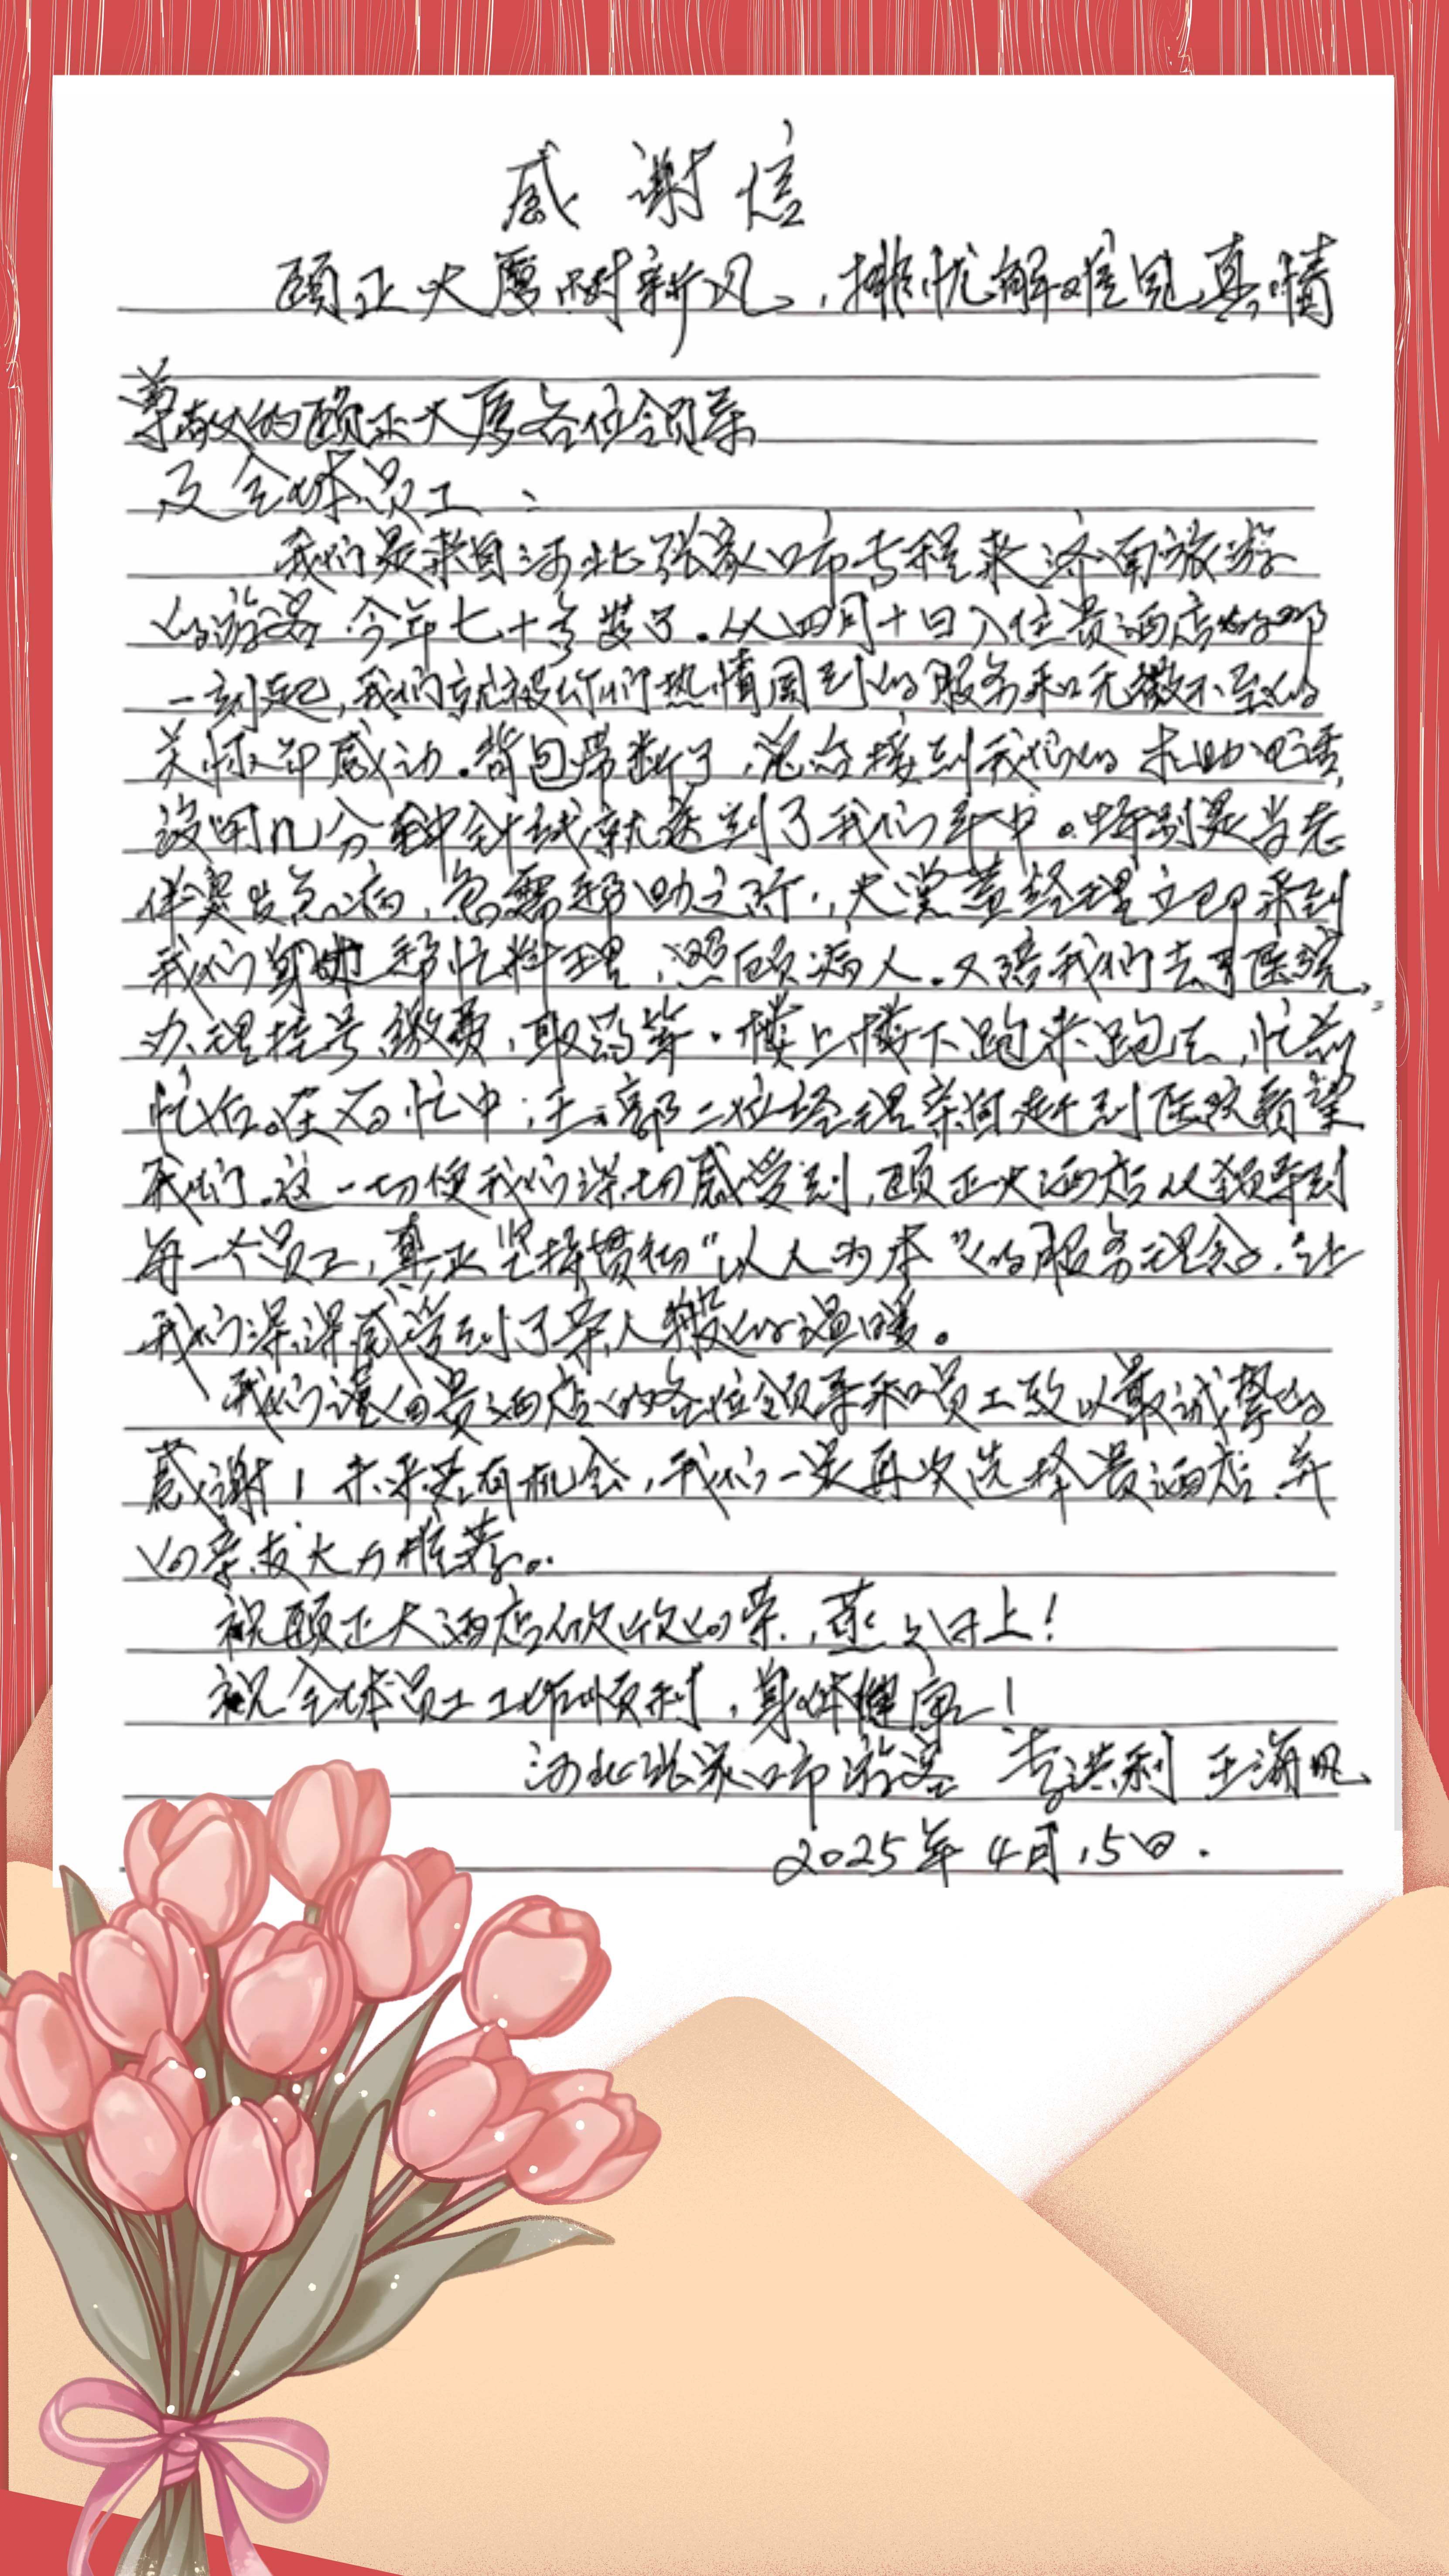 感谢信
颐正大厦树新风，排忧解难见真情
尊敬的颐正大厦各位领导
及全体员工：
我们是来自河北张家口市专程来济南旅游
的游客 今年七十多岁了。从四月十日入住贵酒店的那
一刻起，我们就被你们热情周到的服务和无微不至的
关怀所感动。背包带断了，总台接到我们的求助电话，
没用几分钟针线就送到了我们手中。特别是当老
伴突发急病，急需帮助之际，大堂董经理立即来到
我们身边帮忙料理，照顾病人。又陪我们去了医院，
办理挂号缴费，取药等。楼上楼下跑来跑去，忙前
忙后。在百忙中，王、郭二位经理亲自赶到医院看望
我们。这一切使我们深切感受到，颐正大酒店从领导到
每一个员工，真正坚持贯彻“以人为本”的服务理念，让
我们深深感受到了亲人般的温暖。
我们谨向贵酒店的各位领导和员工致以最诚挚的
感谢！未来若有机会，我们一定再次选择贵酒店，并
向亲友大力推荐。
祝颐正大酒店欣欣向荣，蒸蒸日上！
祝全体员工工作顺利，身体健康！
河北张家口市游客 李洪利 王满
2025年4月15日.